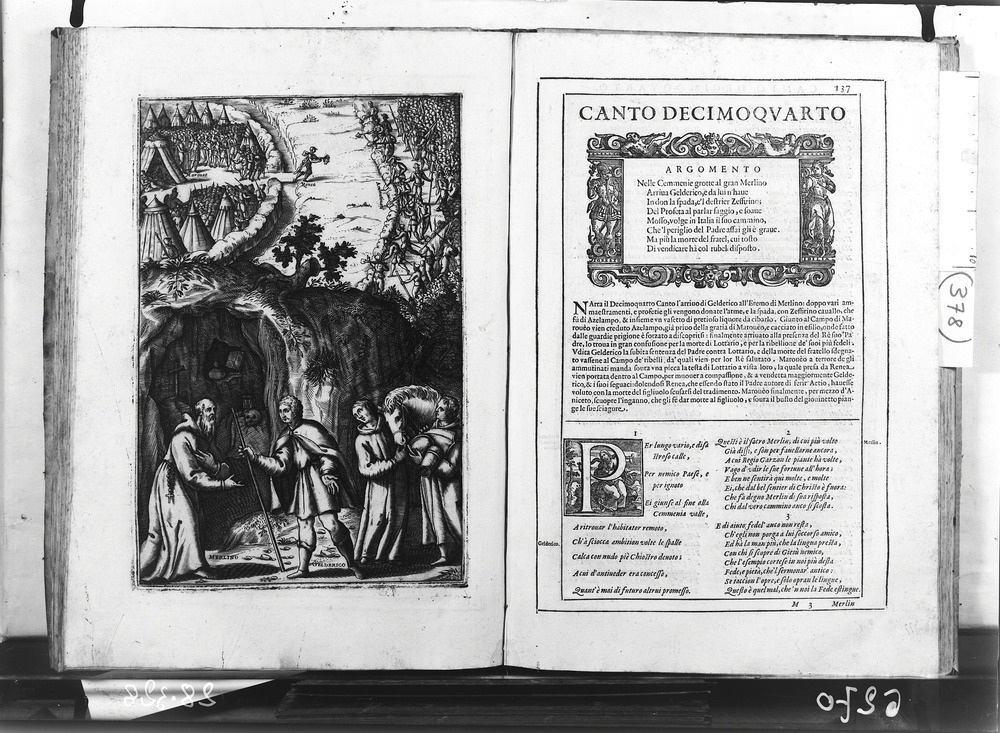 Meroueo
Renea
MERLINO
GELDERICO
137
CANTO DECIMOQVARTO
ARGOMENTO
Nelle Cemmenie grotte al gran Merlino
Arriua Gelderico, e da lui n'haue
In don la spada, e'l destrier Zeffirino;
Del Profeta al parlar saggio, e soaue
Mosso, volge in Italia il suo cammino,
Che'l periglio del Padre assai gli è graue.
Ma più la morte del fratel, cui tosto
Di vendicare hà col rubel disposto.
NArra il Decimoquarto Canto l'arriuo di Gelderico all'Eremo di Merlino: doppo vari am-
maestramenti, e profetie gli vengono donate l'arme, e la spada, con Zeffirino cauallo, che
fù di Azelampo, & insieme vn vasetto di pretioso liquore da cibarlo. Giunto al Campo di Ma-
rouèo vien creduto Azelampo, già priuo della gratia di Marouèo, e cacciato in esilio, onde fatto
dalle guardie prigione è forzato a discoprirsi: finalmente arriuato alla presenza del Rè suo Pa-
dre, lo troua in gran confusione per la morte di Lottario, e per la ribellione de' suoi più fedeli.
Vdita Gelderico la subita sentenza del Padre contra Lottario, e della morte del fratello sdegna-
to vassene al Campo de' ribelli, da' quali vien per lor Rè salutato. Marouèo a terrore de gli
ammutinati manda soura vna picca la testa di Lottario a vista loro, la quale presa da Renea
vien portata dentro al Campo, per muouer a compassione, & a vendetta maggiormente Gelde-
rico, & i suoi seguaci: dolendosi Renea, che essendo stato il Padre autore di ferir' Aetio, hauesse
voluto con la morte del figliuolo scusarsi del tradimento. Marouèo finalmente, per mezzo d'A-
niceto, scuopre l'inganno, che gli fè dar morte al figliuolo, e soura il busto del giouinetto pian-
ge le sue sciagure.
1
PEr lungo vario, e disa
stroso calle,
Per nemico Paese, e
per ignoto
Ei giunse al fine alla
Cemmenia valle,
A ritrouar l'habitator remoto,
Ch'à sciocca ambition volte le spalle
Calca con nudo piè Chiostro deuoto;
A cui d'antiueder era concesso,
Quant'è mai di futuro altrui promesso.
Gelderico.
2
Questi è il sacro Merlin, di cui più volte
Già dissi, e son per fauellarne ancora,
A cui Regio Garzon le piante hà volte,
Vago d'vdir le sue fortune all'hora:
E ben ne sentirà qui molte, e molte
Ei, che dal bel sentier di Christo è fuora:
Che fa degno Merlin di sua risposta,
Chi dal vero cammino anco si scosta.
Merlin.
3
E di aiuto fedel' anco non resta,
Ch'egli non porga a lui soccorso amico,
Ed hà la man più, che la lingua presta,
Con chi si scopre di Giesù nemico,
Che l'esempio cortese in noi più desta
Fede, e pietà, che'l sermonar' antico:
Se taccion l'opre, e solo opran le lingue,
Questo è quel mal, che 'n noi la Fede estingue.
M 3 Merlin
10
(378)
28.328
6270